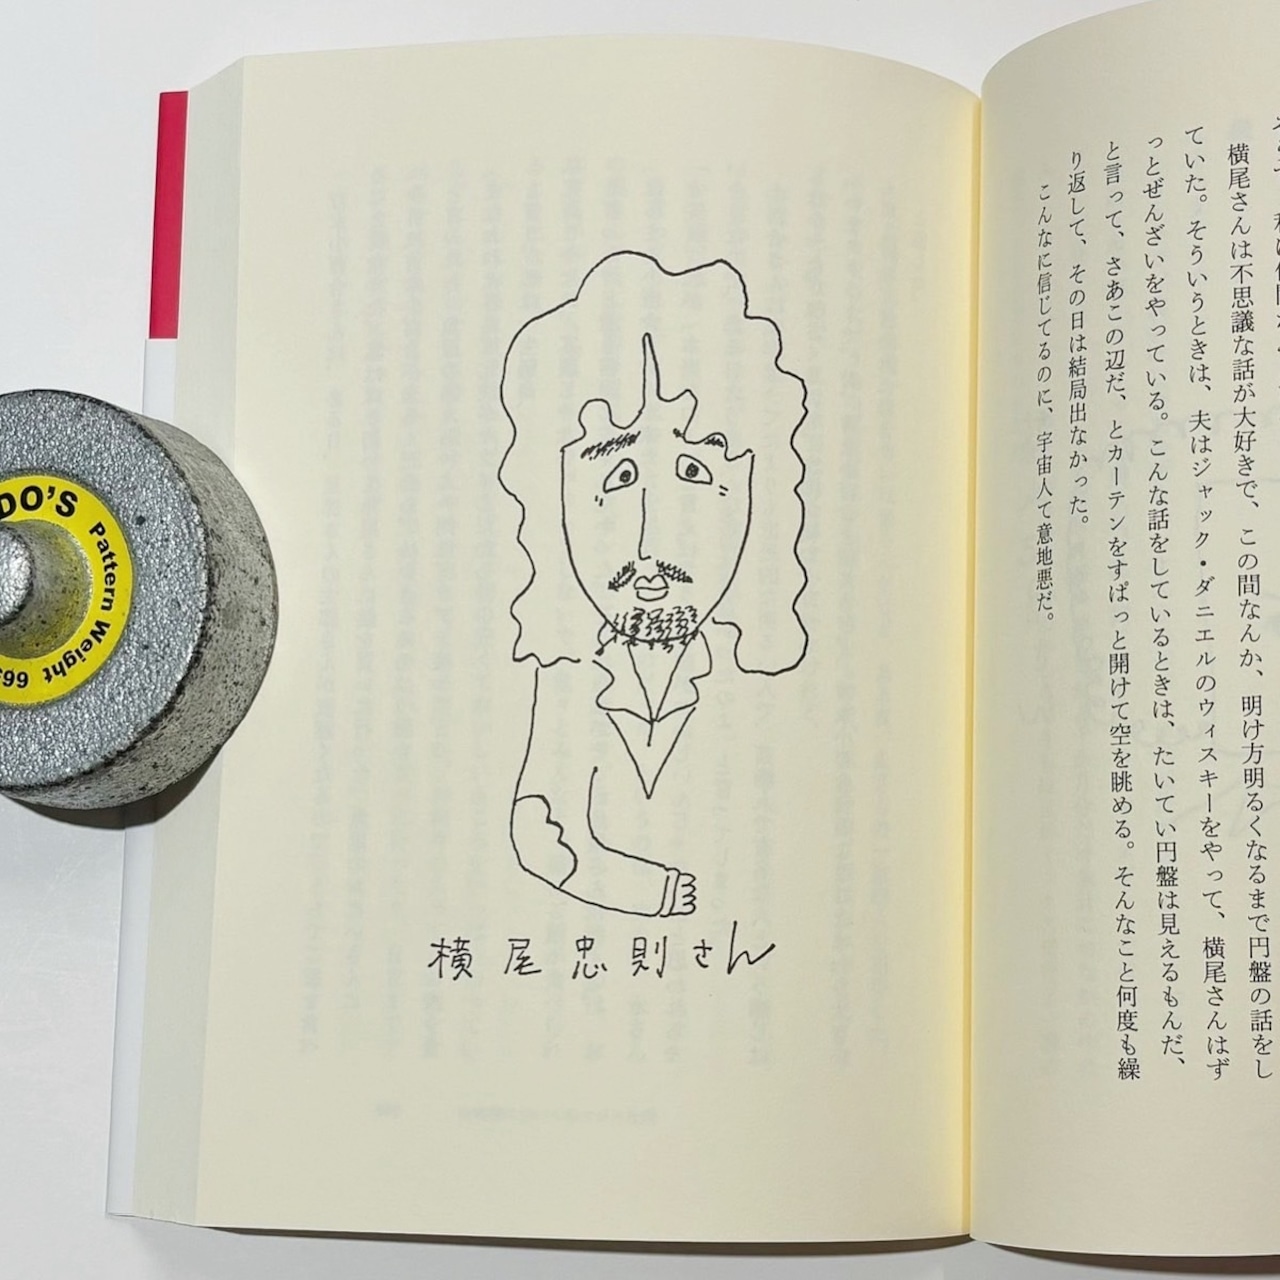 横尾さんは不思議な話が大好きで、この間なんか、明け方明るくなるまで円盤の話をし
ていた。そういうときは、夫はジャック・ダニエルのウィスキーをやって、横尾さんはず
っとぜんざいをやっている。こんな話をしているときは、たいてい円盤は見えるもんだ、
と言って、さあこの辺だ、とカーテンをすぱっと開けて空を眺める。そんなこと何度も繰
り返して、その日は結局出なかった。
こんなに信じてるのに、宇宙人て意地悪だ。
横尾忠則さん
DO'S Pattern Weight 663